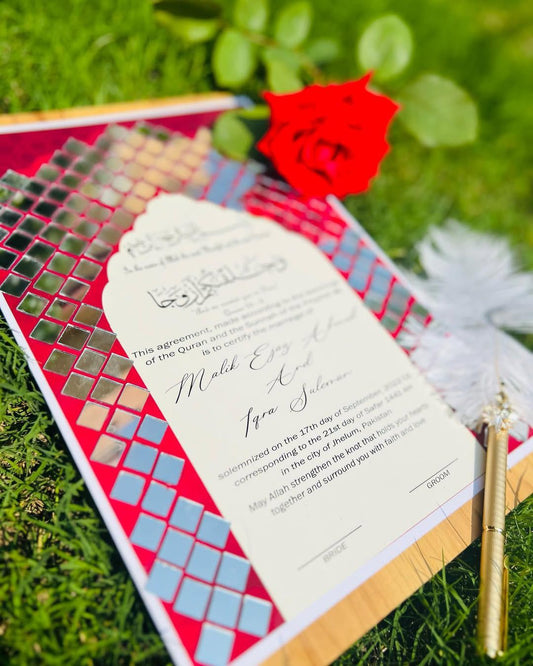 In the name of Allah, the
وخلقناكم أزواجا
And we created you in pairs
This agreement, made according to the
of the Quran and the Sunnah of the
is to certify the marriage of
Malik Ejaz Ahmad
And
Iqra Suleman
solemnized on the 17th day of September, 2022 CE
corresponding to the 21st day of Safer 1441 AH
in the city of Jhelum, Pakistan
May Allah strengthen the knot that holds your hearts
together and surround you with faith and love
GROOM
BRIDE